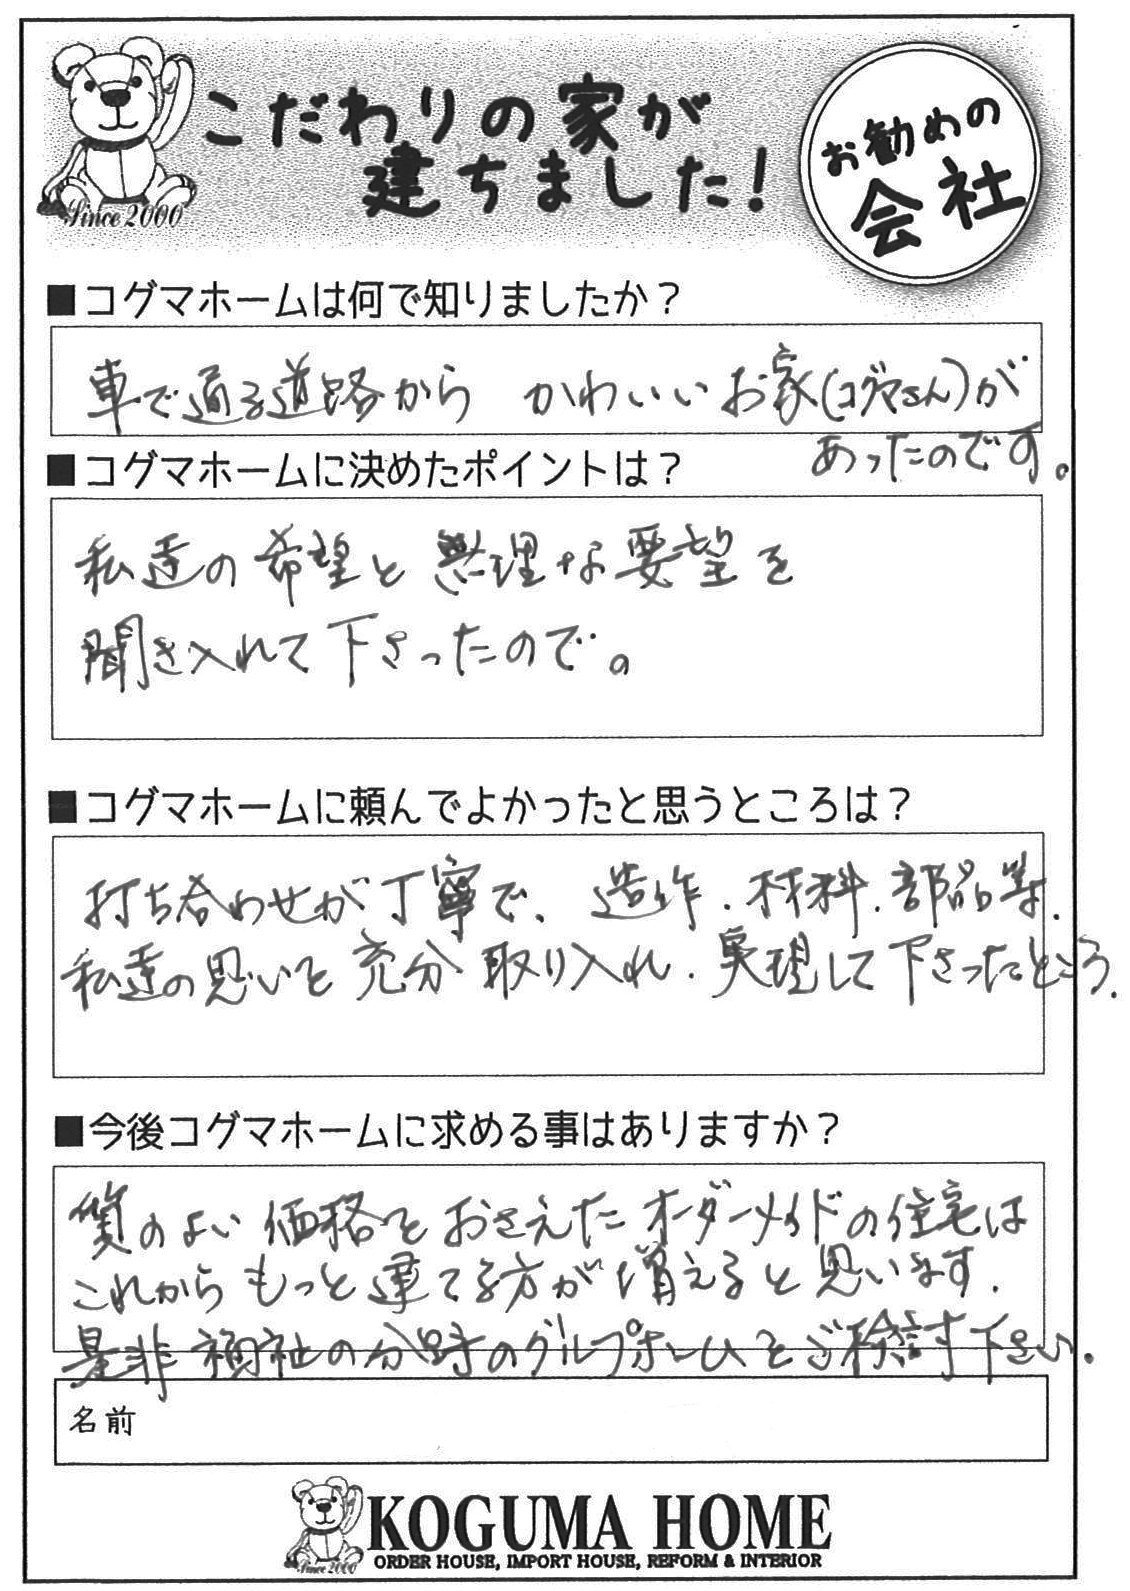 こだわりの家が
建ちました!
お勧めの
会社
Since 2000
■コグマホームは何で知りましたか？
車で通る道路から かわいいお家(コグマさん)が
あったのです。
■コグマホームに決めたポイントは？
私達の希望と無理な要望を
聞き入れて下さったので。
■コグマホームに頼んでよかったと思うところは？
打ち合わせが丁寧で、造作、材料、部品等、
私達の思いを充分取り入れ、実現して下さったところ。
■今後コグマホームに求める事はありますか？
質のよい価格をおさえたオーダーメイドの住宅は
これからもっと建てる方が増えると思います。
是非福祉の分野のグループホームをご検討下さい。
名前
KOGUMA HOME
ORDER HOUSE, IMPORT HOUSE, REFORM & INTERIOR
Since 2000